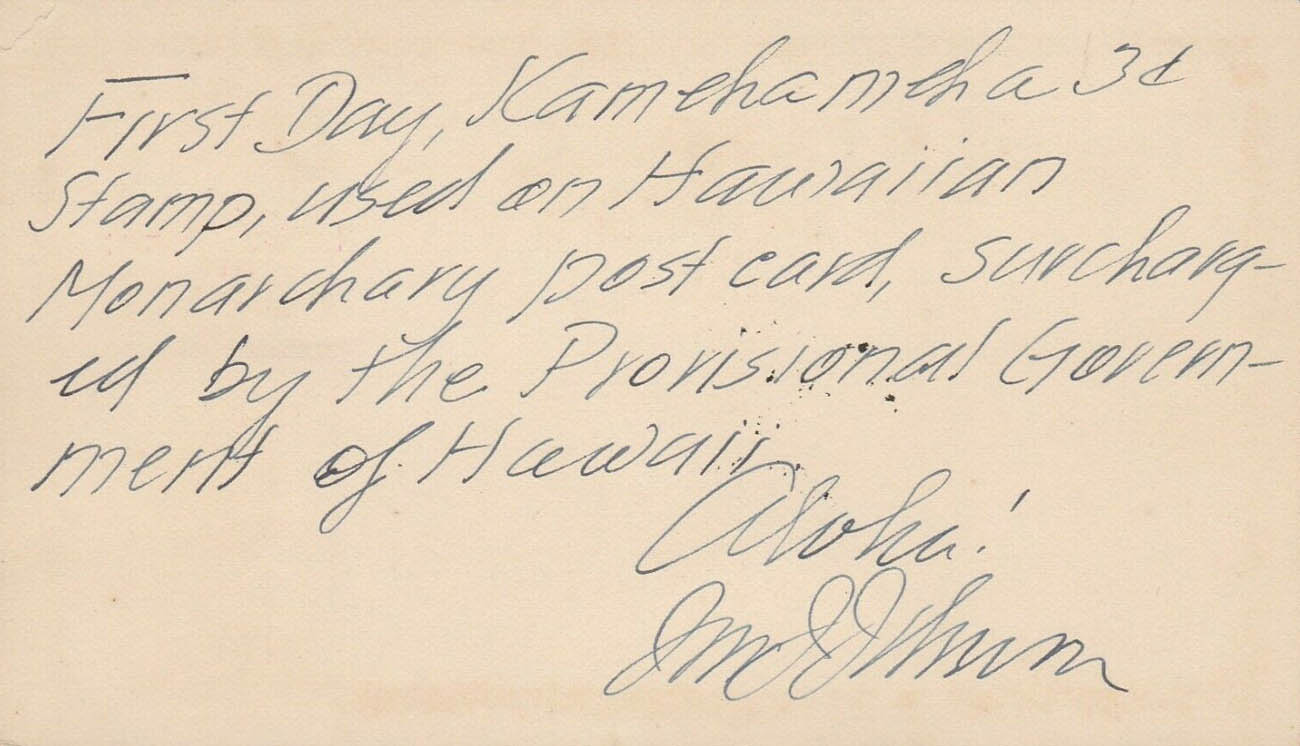 First Day, Kamehameha 3¢
Stamp, used on Hawaiian
Monarchary post card, surcharg-
ed by the Provisional Govern-
ment of Hawaii.
Aloha!